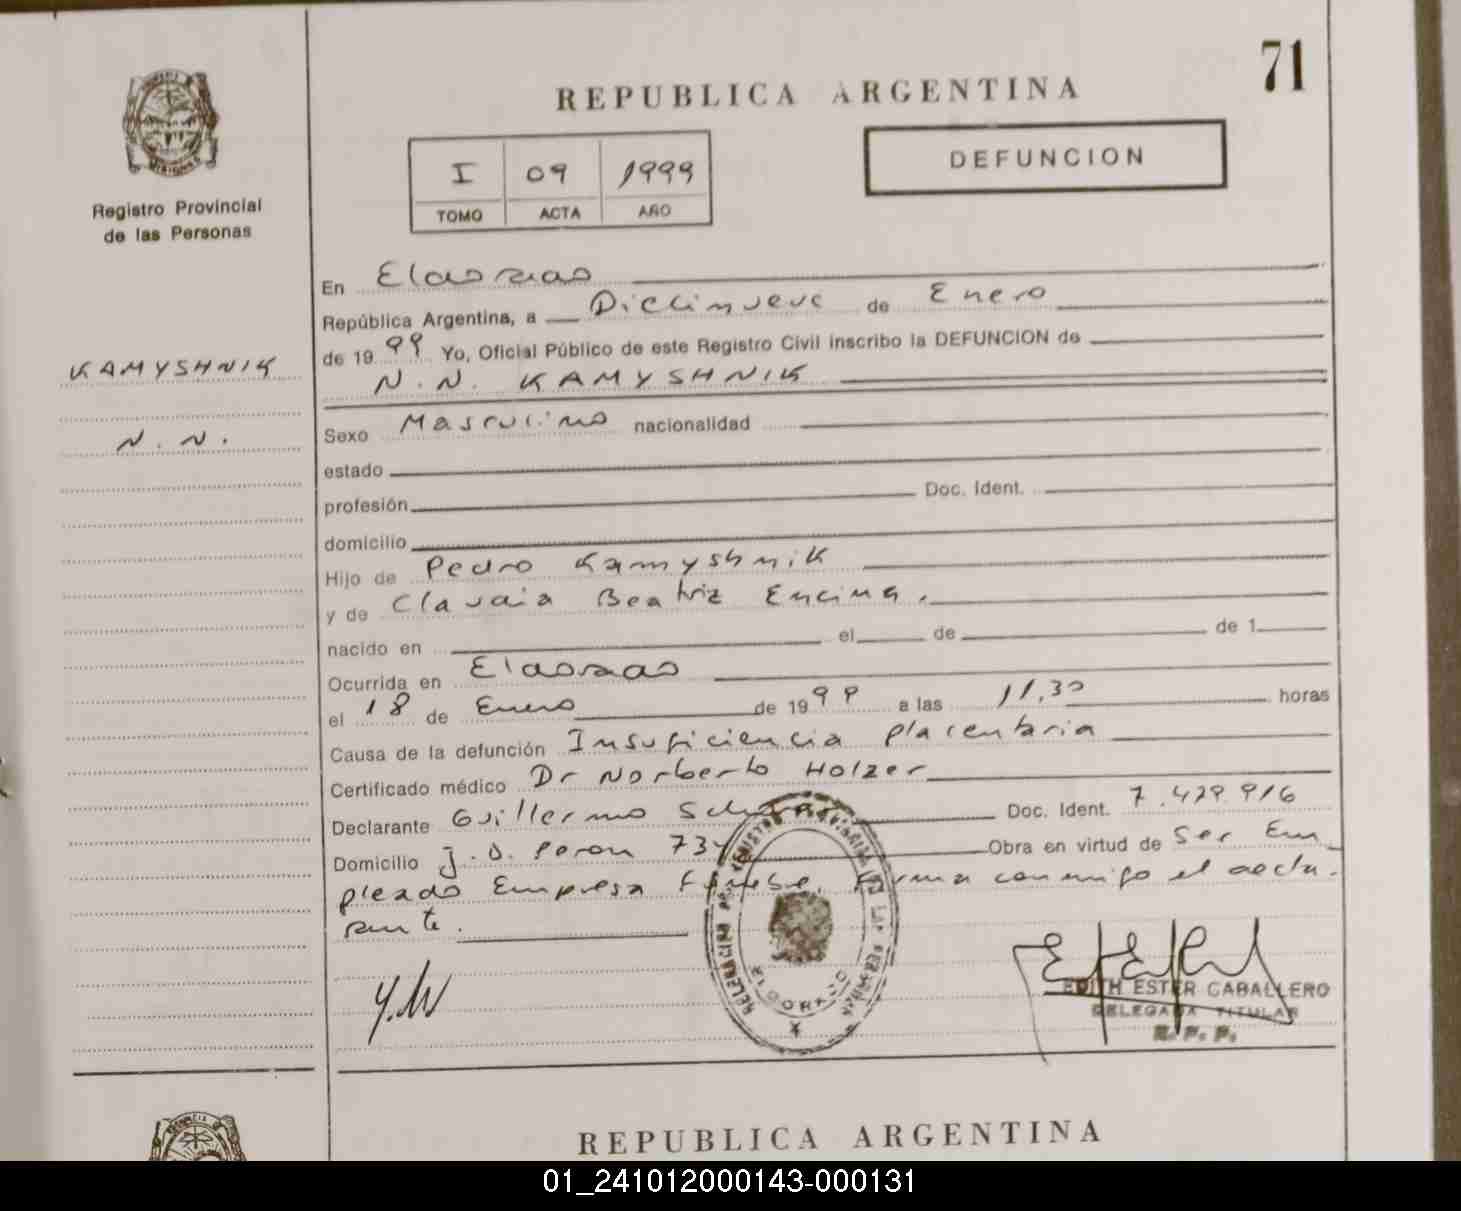 71
REPUBLICA ARGENTINA
I 09 1999
TOMO ACTA AÑO
DEFUNCION
Registro Provincial
de las Personas
KAMYSHNIK
N. N.
En Eldorado
República Argentina, a Diecinueve de Enero
de 1999 Yo, Oficial Público de este Registro Civil inscribo la DEFUNCION de
N. N. KAMYSHNIK
Sexo Masculino nacionalidad
estado
profesión Doc. Ident.
domicilio
Hijo de Pedro Kamyshnik
y de Claudia Beatriz Encina.
nacido en el de de 1
Ocurrida en Eldorado
el 18 de Enero de 1999 a las 11,30 horas
Causa de la defunción Insuficiencia placentaria
Certificado médico Dr Norberto Holzer
Declarante Guillermo Doc. Ident. 7.429.916
Domicilio J. D. Peron 734 Obra en virtud de Ser Em
pleado Empresa Funebre. Firma conmigo el decla-
rante.
ELDORADO
EDITH ESTER CABALLERO
DELEGADA TITULAR
R. P. P.
REPUBLICA ARGENTINA
01_241012000143-000131